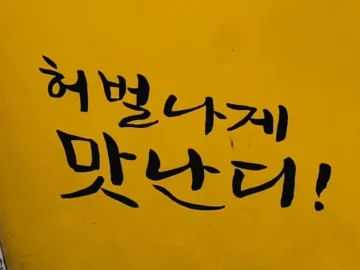 허벌나게
맛난디!